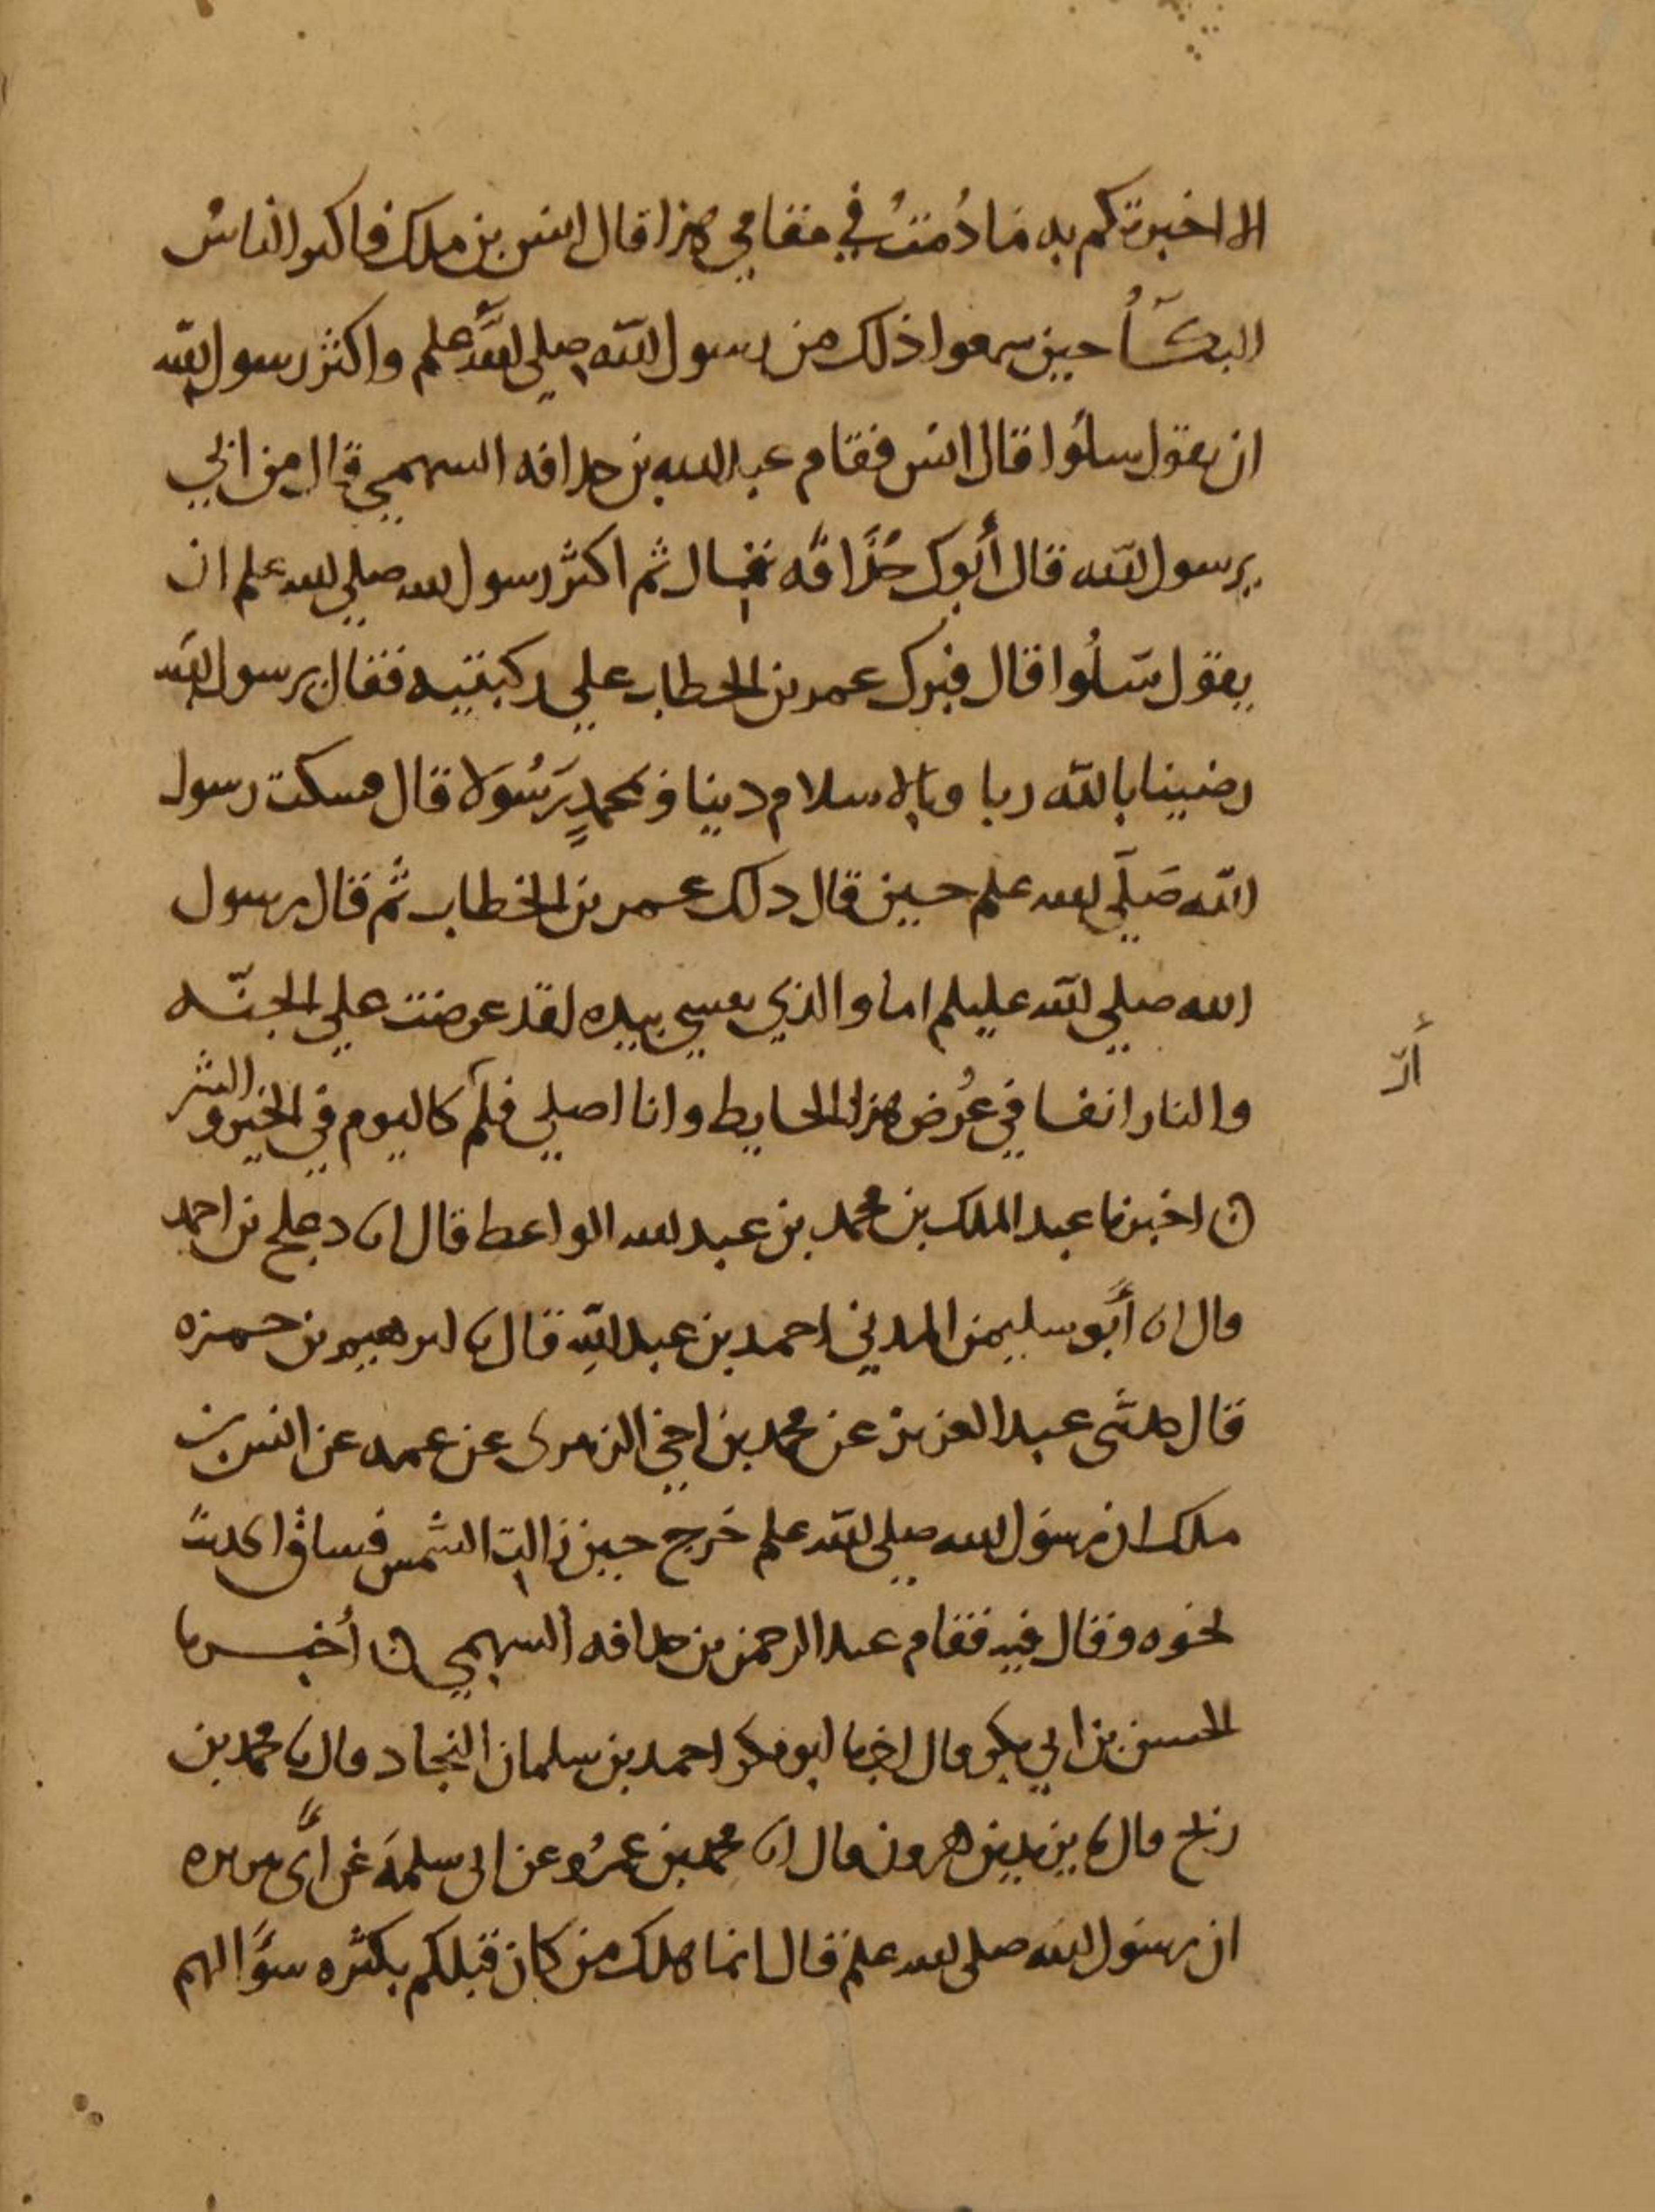 الا اخبرتكم به مَا دُمتُ في مقامي هذا قال انس بن ملك فاكثر الناسُ
البكــآُ حين سمعوا ذلك من رسول الله صلي الله علم واكثر رسول الله
ان يقول سلُوا قال انس فقام عبد الله بن حدافه السهمي قال من ابي
يرسول الله قال أبوك حُذَافَه قال ثم اكثر رسول الله صلي الله علم ان
يقول سَلُوا قال فبرك عمر بن الخطاب علي ركبتيه فقال يرسول الله
رضينا بالله ربا وبالاسلام دينا وبمحمدٍ رَسُولا قال فسكت رسول
الله صَلَّي الله علم حين قال دلك عمر بن الخطاب ثم قال رسول
الله صلي الله عليلم اما والذي نفسي بيده لقد عرضت علي الجنّه
والنار انفا في عُرض هذا الحايط وانا اصلي فلم كاليوم في الخير و الشر
أرَ
ں اخبرنا عبد الملك بن محمد بن عبد الله الواعط قال انا دعلج بن احمد
قال انا أبو سليمن المديني احمد بن عبد الله قال نا ابرهيم بن حمزه
قال حدثني عبد العزيز عن محمد بن اخي الزهري عن عمه عن انس بن
ملك ان رسول الله صلي الله علم خرج حين زالت الشمس فساق الحديث
نحوه وقال فيه فقام عبد الرحمن بن حدافه السهمي ں أخبــرنا
الحسن بن ابي بكر قال اخبرنا ابو بكر احمد بن سلمان النجاد قال نا محمد بن
رمح قال نا يزيد بن هرون قال انا محمد بن عمرو عن ابي سلمه عن أبي هريره
ان رسول الله صلي الله علم قال انما هلك من كان قبلكم بكثره سؤالهم